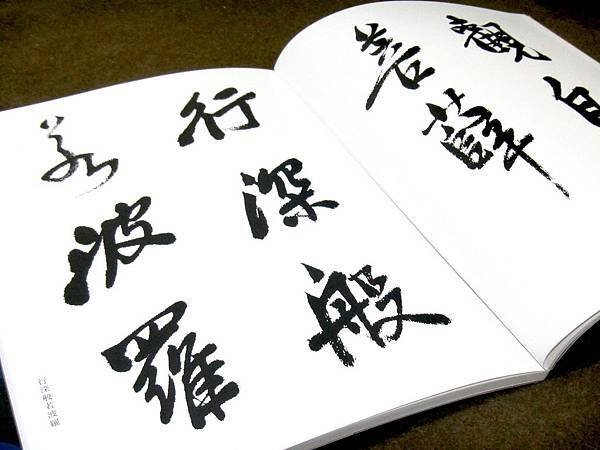 觀自
菩薩
行深般
若波羅
行深般若波羅